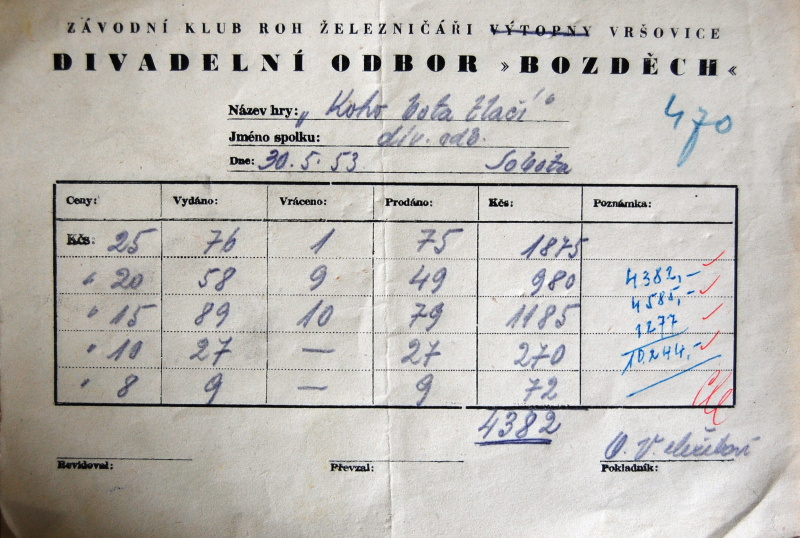 ZÁVODNÍ KLUB ROH ŽELEZNIČÁŘI VÝTOPNY VRŠOVICE
DIVADELNÍ ODBOR »BOZDĚCH«
Název hry: „Koho bota tlačí“
470
Jméno spolku: div. odb.
Dne: 30.5.53 Sobota
Ceny: Vydáno: Vráceno: Prodáno: Kčs: Poznámka:
Kčs: 25 76 1 75 1875
" 20 58 9 49 980 4382,-
" 15 89 10 79 1185 4585,-
1277
" 10 27 — 27 270 10.244.-
" 8 9 — 9 72
4382
Revidoval: Převzal: Pokladník: